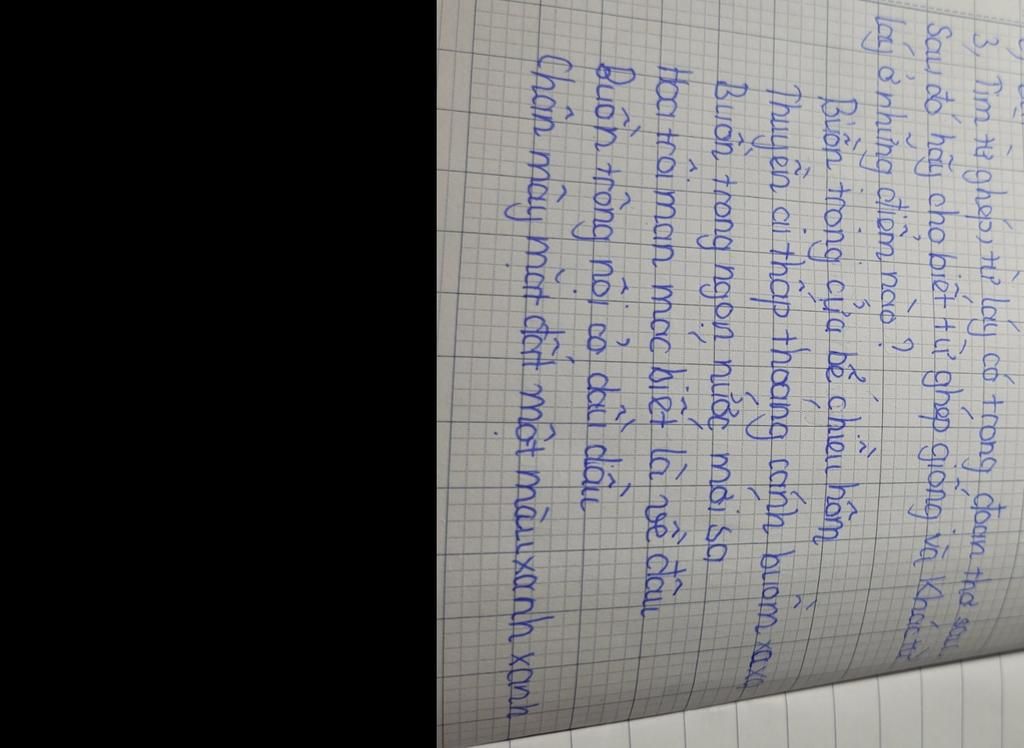 3, Tìm từ ghép, từ láy có trong đoạn thơ sau
Sau đó hãy cho biết từ ghép giống và khác từ
láy ở những điểm nào?
Buồn trong cửa bể chiều hôm
Thuyền ai thấp thoáng cánh buồm xaxa
Buồn trong ngọn nước mới sa
Hoa trôi man mác biết là về đâu
Buồn trông nội cỏ dầu dầu
Chân mây mặt đất một màu xanh xanh